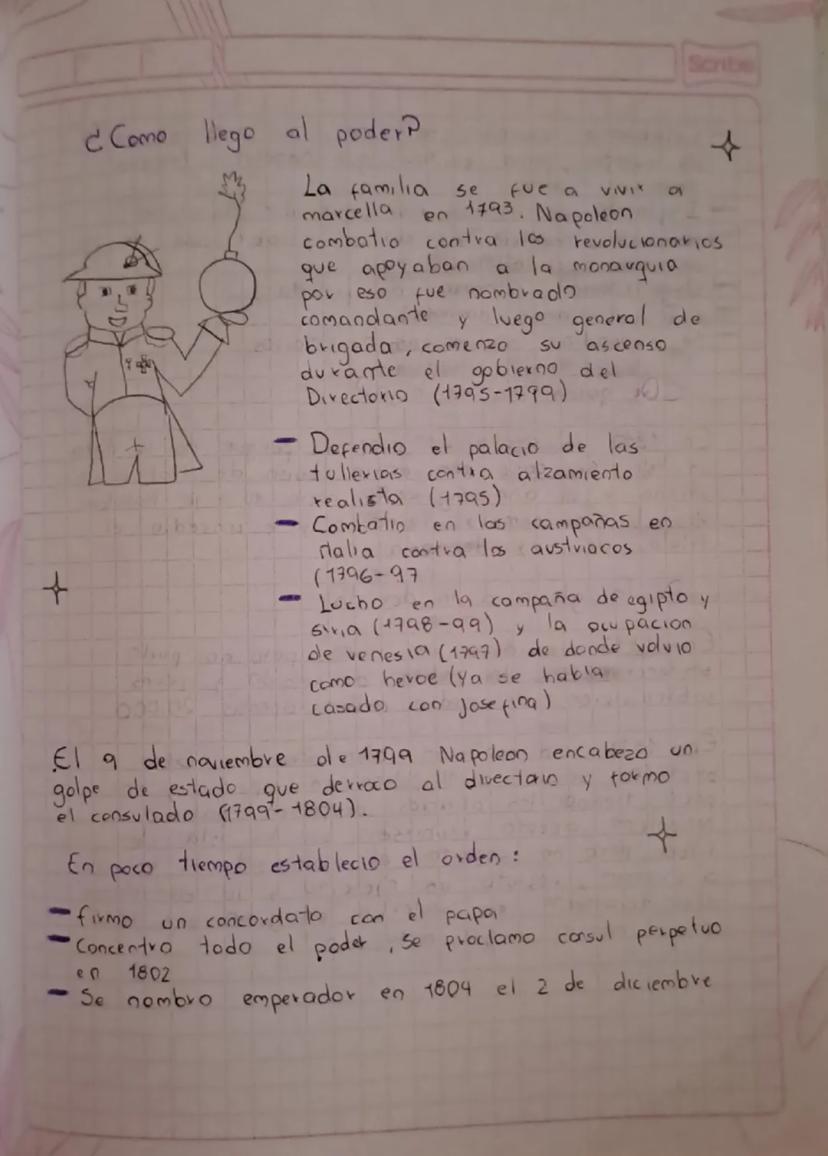 Scribe
¿Como llego al poder?
La familia se fue a vivir a
marcella en 1793. Napoleon
combatio contra los revolucionarios
que apoyaban a la monarquia
por eso fue nombrado
comandante y luego general de
brigada, comenzo su ascenso
durante el gobierno del
Directorio (1795-1799)
- Defendio el palacio de las
tullerias contra alzamiento
realista (1795)
- Combatio en las campañas en
italia contra los austriacos
(1796-97
- Lucho en la compaña de egipto y
siria (1798-99) y la ocupacion
de venesia (1797) de donde volvio
como heroe (ya se habia
casado con Josefina)
El 9 de noviembre de 1799 Napoleon encabezo un
golpe de estado que derroco al directorio y formo
el consulado (1799-1804).
En poco tiempo establecio el orden:
- firmo un concordato con el papa
- Concentro todo el poder, se proclamo consul perpetuo
en 1802
- Se nombro emperador en 1804 el 2 de diciembre